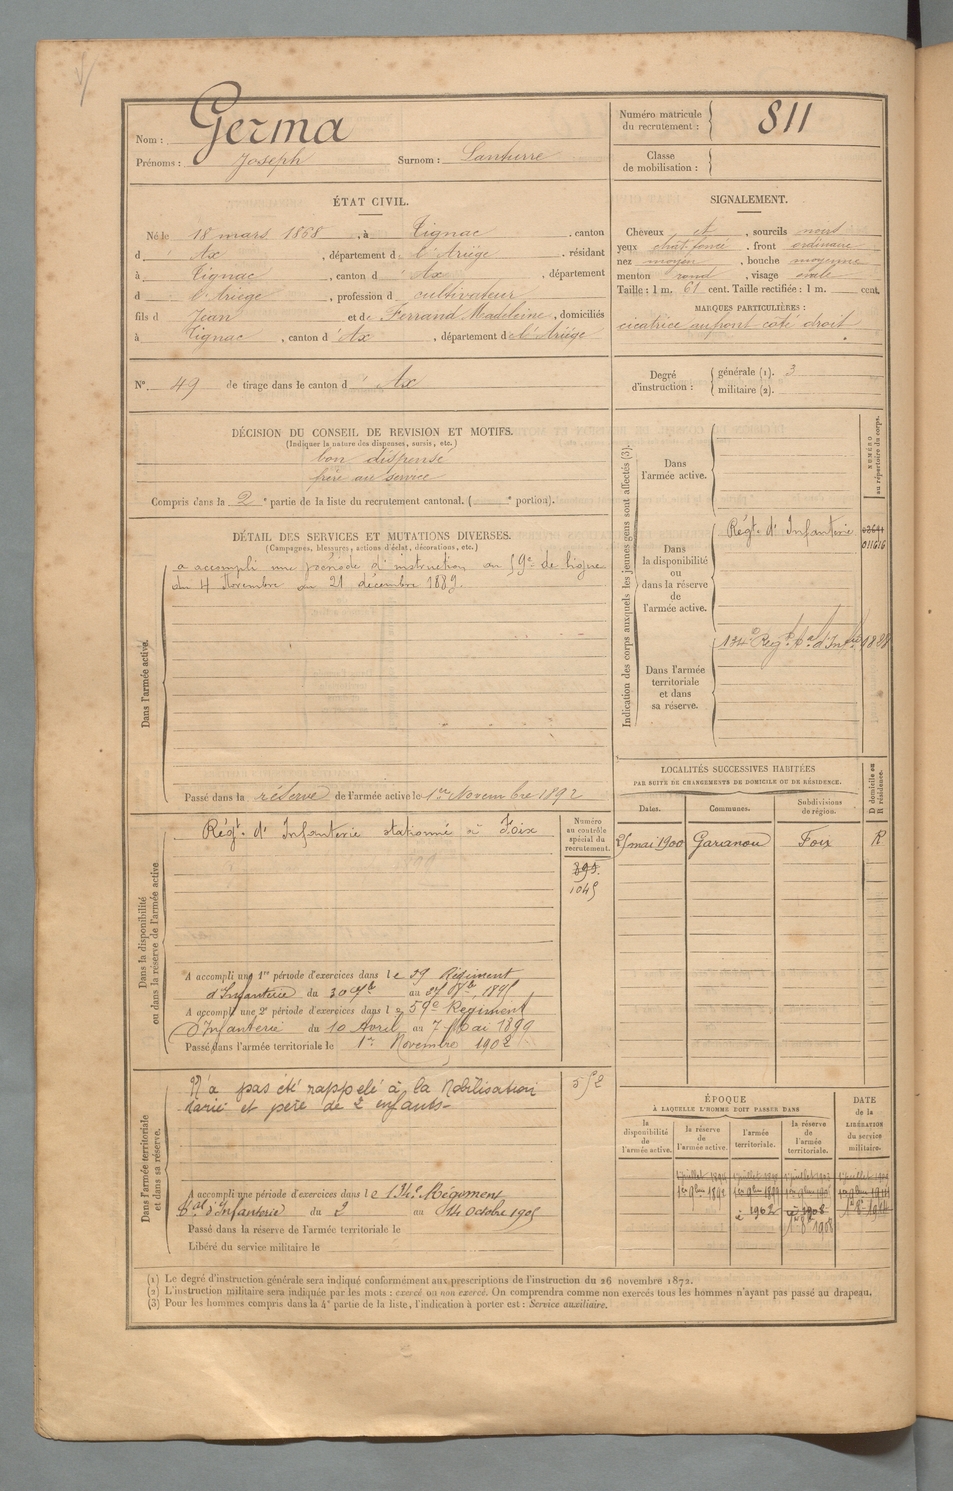 Nom : Germa
Prénoms : Joseph Surnom : Lanterre
Numéro matricule du recrutement : 811
Classe de mobilisation :
ÉTAT CIVIL.
Né le 18 mars 1868, à Tignac, canton
d' Ax, département de l'Ariège, résidant
à Tignac, canton d' Ax, département
d l'Ariège, profession d cultivateur
fils d Jean et de Ferrand Madeleine, domiciliés
à Tignac, canton d' Ax, département de l'Ariège
SIGNALEMENT.
Cheveux et, sourcils noirs
yeux chât. foncé, front ordinaire
nez moyen, bouche moyenne
menton rond, visage ovale
Taille : 1 m. 61 cent. Taille rectifiée : 1 m. cent.
MARQUES PARTICULIÈRES :
cicatrice au front côté droit
N° 49 de tirage dans le canton d' Ax
Degré d'instruction : générale (1). 3
militaire (2).
DÉCISION DU CONSEIL DE REVISION ET MOTIFS.
(Indiquer la nature des dispenses, sursis, etc.)
bon dispensé
frère au service
Compris dans la 2e partie de la liste du recrutement cantonal. ( e portion).
DÉTAIL DES SERVICES ET MUTATIONS DIVERSES.
(Campagnes, blessures, actions d'éclat, décorations, etc.)
Dans l'armée active.
a accompli une période d'instruction au 59e de ligne
du 4 Novembre au 21 décembre 1889.
Passé dans la réserve de l'armée active le 1er Novembre 1892
Indication des corps auxquels les jeunes gens sont affectés (3).
NUMÉRO au répertoire du corps.
Dans l'armée active.
Dans la disponibilité ou dans la réserve de l'armée active.
Régt. d'Infanterie
011616
Dans l'armée territoriale et dans sa réserve.
134e Régt tal d'Infrie
LOCALITÉS SUCCESSIVES HABITÉES
PAR SUITE DE CHANGEMENTS DE DOMICILE OU DE RÉSIDENCE.
D domicile ou R résidence.
Dates. Communes. Subdivisions de région.
25 mai 1900 Garanou Foix R
Dans la disponibilité ou dans la réserve de l'armée active
Régt. d'Infanterie stationné à Foix
Numéro au contrôle spécial du recrutement.
895.
1045
A accompli une 1re période d'exercices dans le 59 Régiment
d'Infanterie du 30 7bre au 27 8bre 1895
A accompli une 2e période d'exercices dans le 59e Régiment
d'Infanterie du 10 Avril au 7 Mai 1899
Passé dans l'armée territoriale le 1er Novembre 1902
Dans l'armée territoriale et dans sa réserve.
N'a pas été rappelé à la Mobilisation
Marié et père de 2 enfants-
552
A accompli une période d'exercices dans le 134e Régiment
tal d'Infanterie du 2 au 14 Octobre 1905
Passé dans la réserve de l'armée territoriale le
Libéré du service militaire le
ÉPOQUE
À LAQUELLE L'HOMME DOIT PASSER DANS
la disponibilité de l'armée active. la réserve de l'armée active. l'armée territoriale. la réserve de l'armée territoriale.
DATE de la LIBÉRATION du service militaire.
(1) Le degré d'instruction générale sera indiqué conformément aux prescriptions de l'instruction du 26 novembre 1872.
(2) L'instruction militaire sera indiquée par les mots : exercé ou non exercé. On comprendra comme non exercés tous les hommes n'ayant pas passé au drapeau.
(3) Pour les hommes compris dans la 4e partie de la liste, l'indication à porter est : Service auxiliaire.